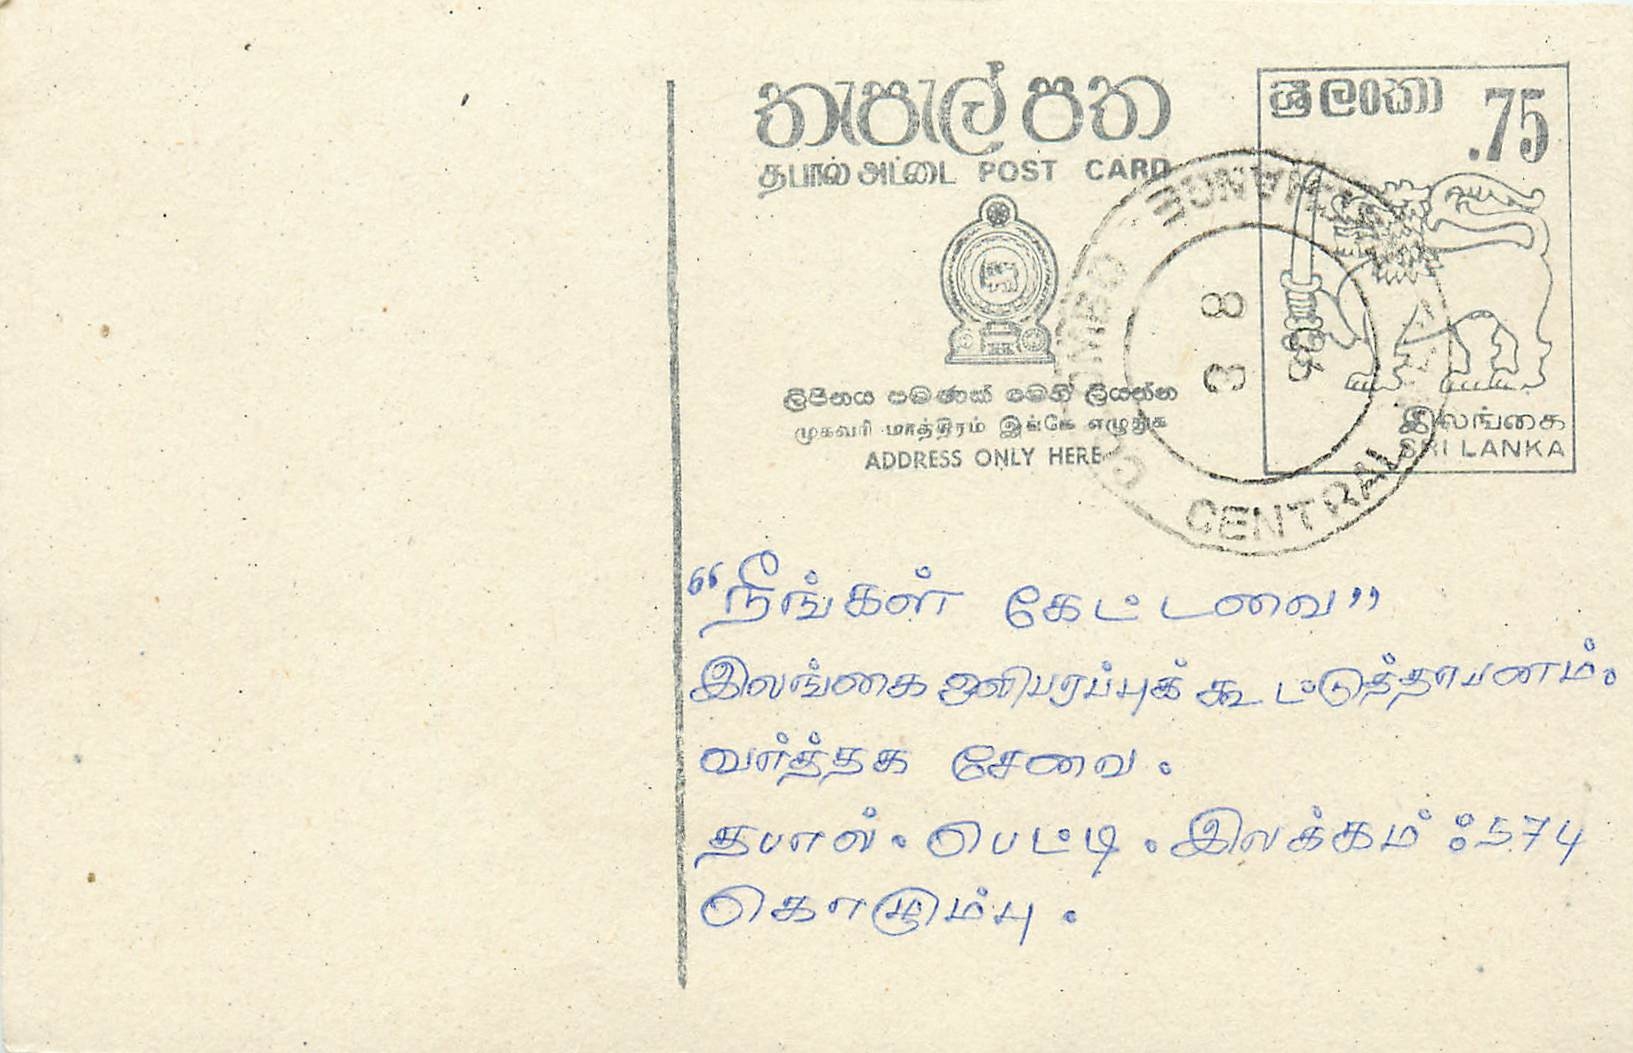 තැපැල් පත
தபால் அட்டை POST CARD
ශ්‍රී ලංකා .75
ලිපිනය පමණක් මෙහි ලියන්න
முகவரி மாத்திரம் இங்கே எழுதுக
ADDRESS ONLY HERE
இலங்கை
SRI LANKA
COLOMBO CENTRAL EXCHANGE
8
3
“நீங்கள் கேட்டவை”
இலங்கை ஒலிபரப்புக் கூட்டுத்தாபனம்.
வர்த்தக சேவை.
தபால். பெட்டி. இலக்கம் ஃ 574
கொழும்பு.